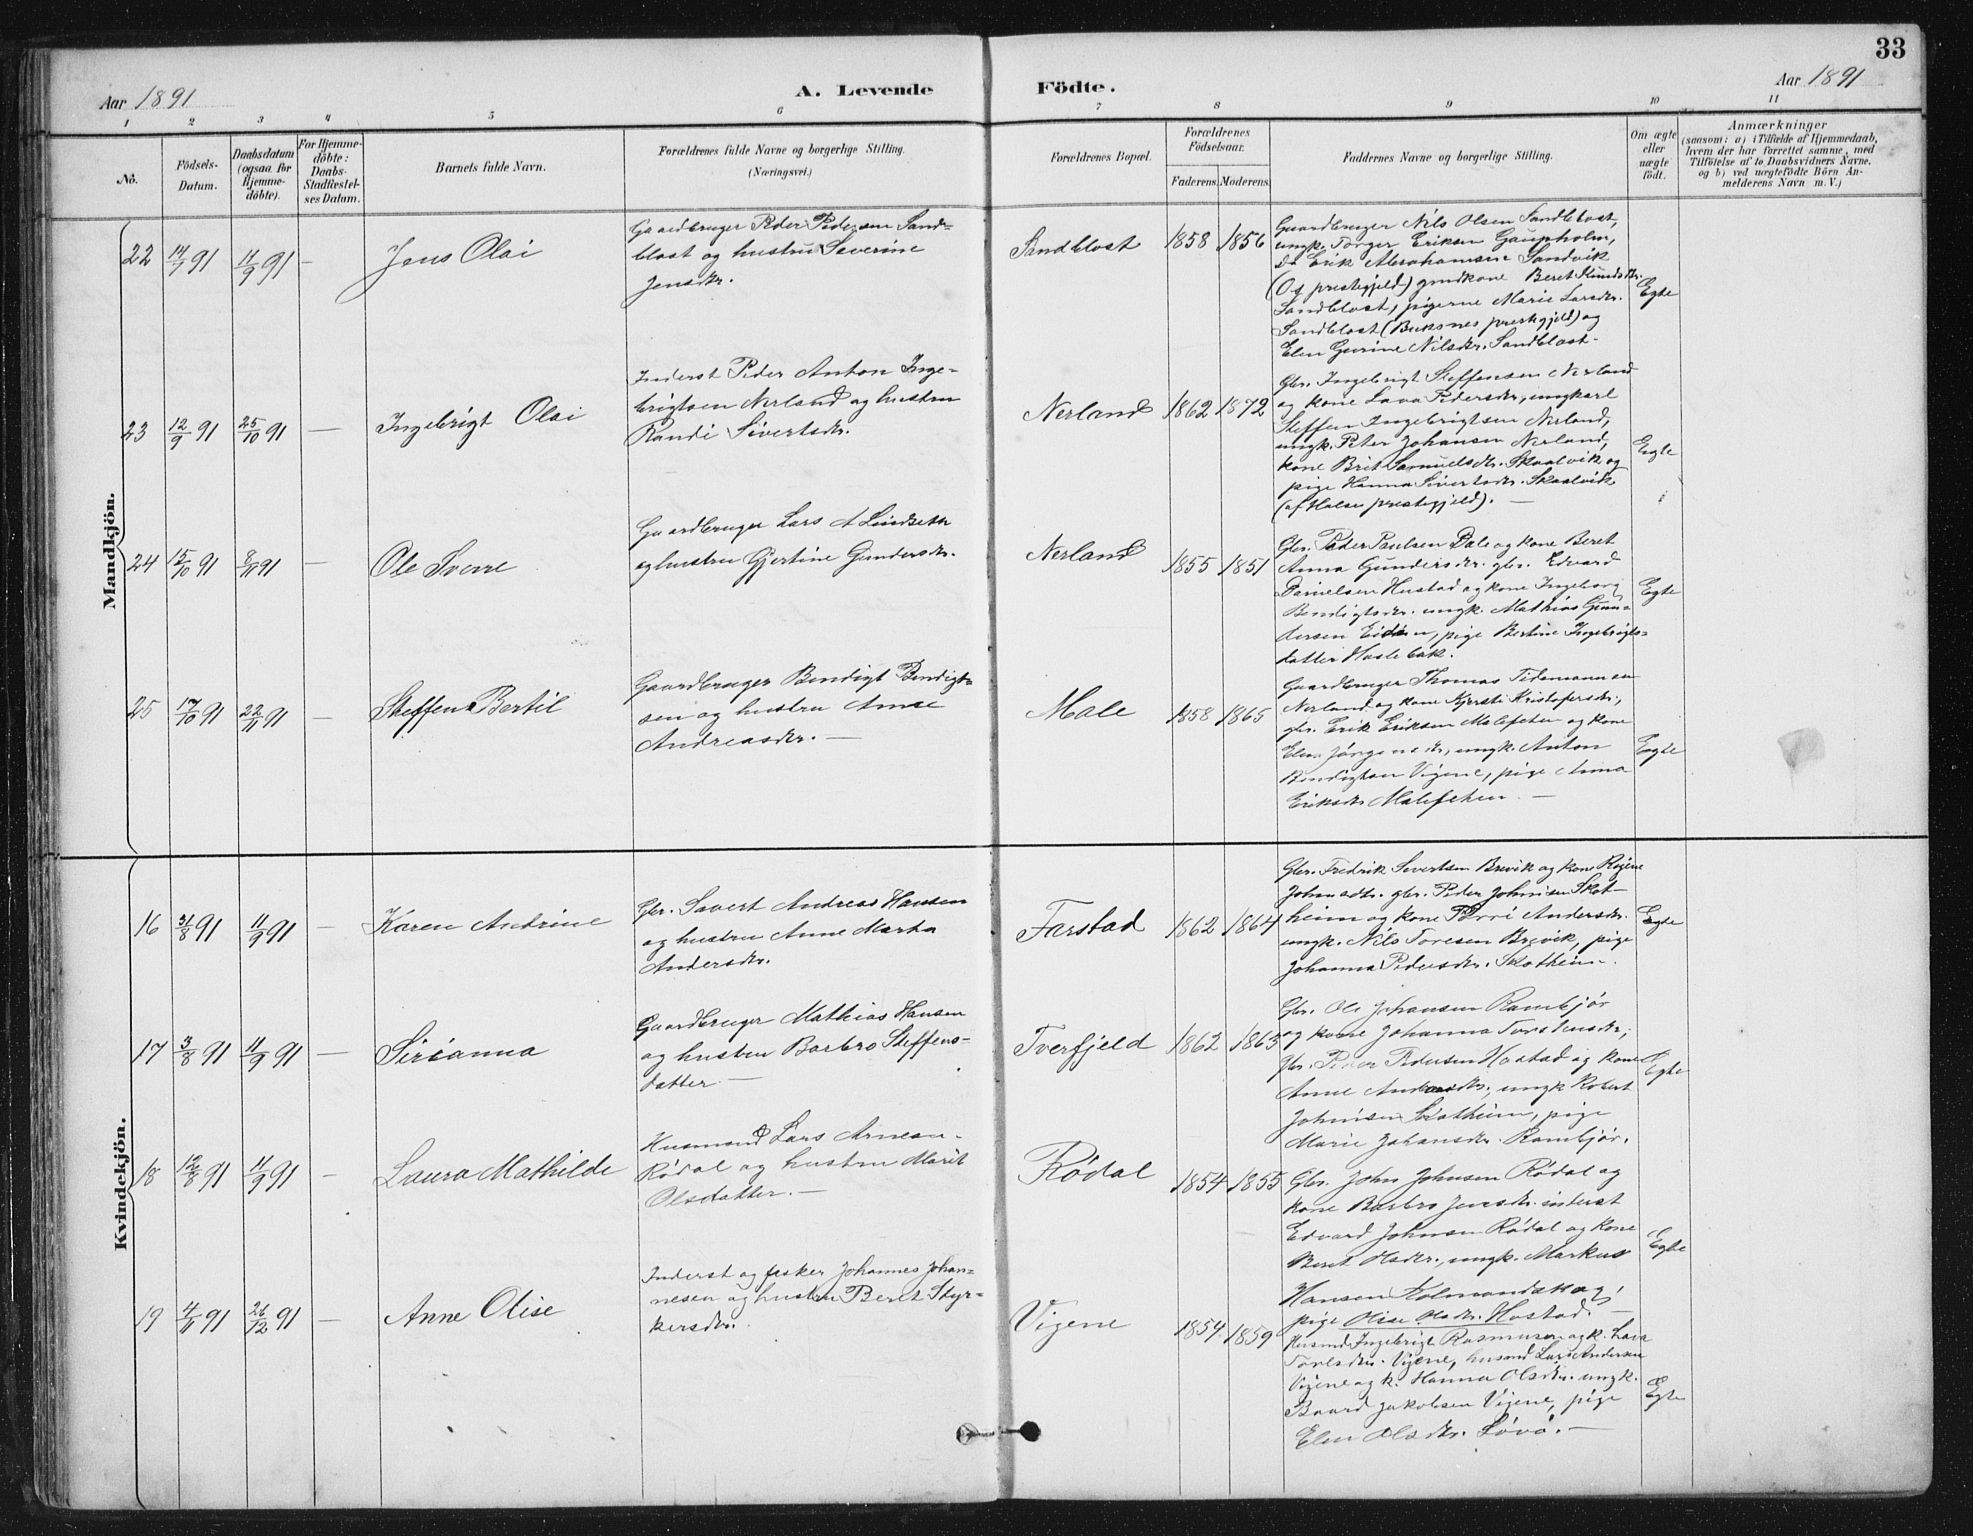 33
Aar 1891
A. Levende
Födte.
Aar 1891
1 2 3 4 5 6 7 8 9 10 11
No.
Födsels-
Datum.
Daabsdatum
(ogsaa for
Hjemme-
döbte).
For Hjemme-
döbte:
Daabs-
Stadfæstel-
ses Datum.
Barnets fulde Navn.
Forældrenes fulde Navne og borgerlige Stilling.
(Næringsvei.)
Forældrenes Bopæl.
Forældrenes
Födselsaar.
Faderens.
Moderens.
Faddernes Navne og borgerlige Stilling.
Om ægte
eller
uægte
födt.
Anmærkninger
(saasom: a) i Tilfælde af Hjemmedaab,
hvem der har forrettet samme, med
Tilföielse af to Daabsvidners Navne,
og b) ved uægtefödte Börn An-
melderens Navn m. V.)
Mandkjön.
22 14/7 91 11/9 91 —
Jens Olai
Gaardbruger Peder Pedersen Sand-
blost og hustru Severine
Jensdtr.
Sandblost
1858 1856
Gaardbruger Nils Olsen Sandblost,
ungk. Torger Eriksen Gaupholm,
Do Erik Abrahamsen Sandvik
(Os prestegjeld) gmdkone Beret Knudsdtr.
Sandblost, pigerne Marie Larsdtr.
Sandblost (Buksnes prestegjeld) og
Elen Gurine Nilsdtr. Sandblost.
Egte
23 12/9 91 25/10 91 —
Ingebrigt Olai
Inderst Peder Anton Inge-
brigtsen Nerland og hustru
Randi Sivertsdtr.
Nerland
1862 1872
Gbr. Ingebrigt Steffensen Nerland
og kone Lava Pedersdtr, ungkarl
Steffen Ingebrigtsen Nerland,
ungk. Peter Johansen Nerland,
kone Brit Samuelsdtr. Skaalvik og
pige Hanna Sivertsdtr. Skaalvik
(af Halse prestegjeld). —
Egte
24 15/10 91 8/11 91 —
Ole Sverre
Gaardbruger Lars A Lindseth
og hustru Gjertine Gundersdtr.
Nerland
1855 1851
Gbr. Peder Paulsen Dale og kone Beret
Anna Gundersdtr. gbr. Edvard
Danielsen Hustad og kone Ingeborg
Bendigtsdtr. ungk. Mathias Gun-
dersen Eiden, pige Bertine Ingebrigts-
datter Haslebak.
Egte
25 17/10 91 22/11 91 —
Steffen Bertil
Gaardbruger Bendigt Bendigt-
sen og hustru Anne
Andreasdtr. —
Male
1858 1865
Gaardbruger Thomas Tidemannsen
Nerland og kone Kjersti Kristofersdtr,
gbr. Erik Eriksen Malefeten og kone
Elen Jörgensdtr, ungk. Anton
Bendigtsen Vigene, pige Anna
Eriksdtr Malefeten. —
Egte
Kvindekjön.
16 31/8 91 11/9 91 —
Karen Andrine
Gbr. Savert Andreas Hansen
og hustru Anne Marta
Andersdtr.
Farstad
1862 1864
Gbr. Fredrik Sivertsen Brevik og kone
Johnsdtr. gbr. Peder Johnsen Skot-
heim og kone Andersdtr.
ungk. Nils Toresen Brevik, pige
Johanna Pedersdtr. Skotheim.
Egte
17 3/8 91 11/9 91 —
Sirianna
Gaardbruger Mathias Hansen
og hustru Barbro Steffens-
datter. —
Tverfjeld
1862 1863
Gbr. Ole Johansen Rambjör
og kone Johanna Torstensdtr,
gbr. Peder Pedersen Hostad og kone
Anne Andersdtr, ungk Robert
Johnsen Skotheim, pige
Marie Johansdtr. Rambjör.
Egte
18 12/8 91 11/9 91 —
Laura Mathilde
Husmand Lars Arnesen
Rödal og hustru Marit
Olsdatter. —
Rödal
1854 1855
Gbr. John Johnsen Rödal og
kone Barbro Jensdtr. inderst
Edvard Johnsen Rödal og kone
Beret Olsdtr. ungk. Markus
Hansen Kolmandskog,
pige Olise Olsdtr. Hostad. —
Egte
19 4/11 91 26/12 91 —
Anne Olise
Inderst og fisker Johannes Johan-
nesen og hustru Beret Styr-
kersdtr.
Vigene
1854 1859
Husmd Ingebrigt Rasmusen og k. Lava
Vigene, husmd Lars Andersen
Vigene og k. Hanna Olsdtr. ungk.
Baard Jakobsen Vigene, pige
Elen Olsdtr. Lövö. —
Egte